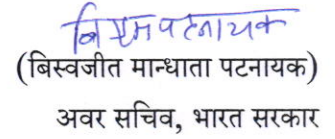 बि एम पटनायक
(बिस्वजीत मान्धाता पटनायक)
अवर सचिव, भारत सरकार